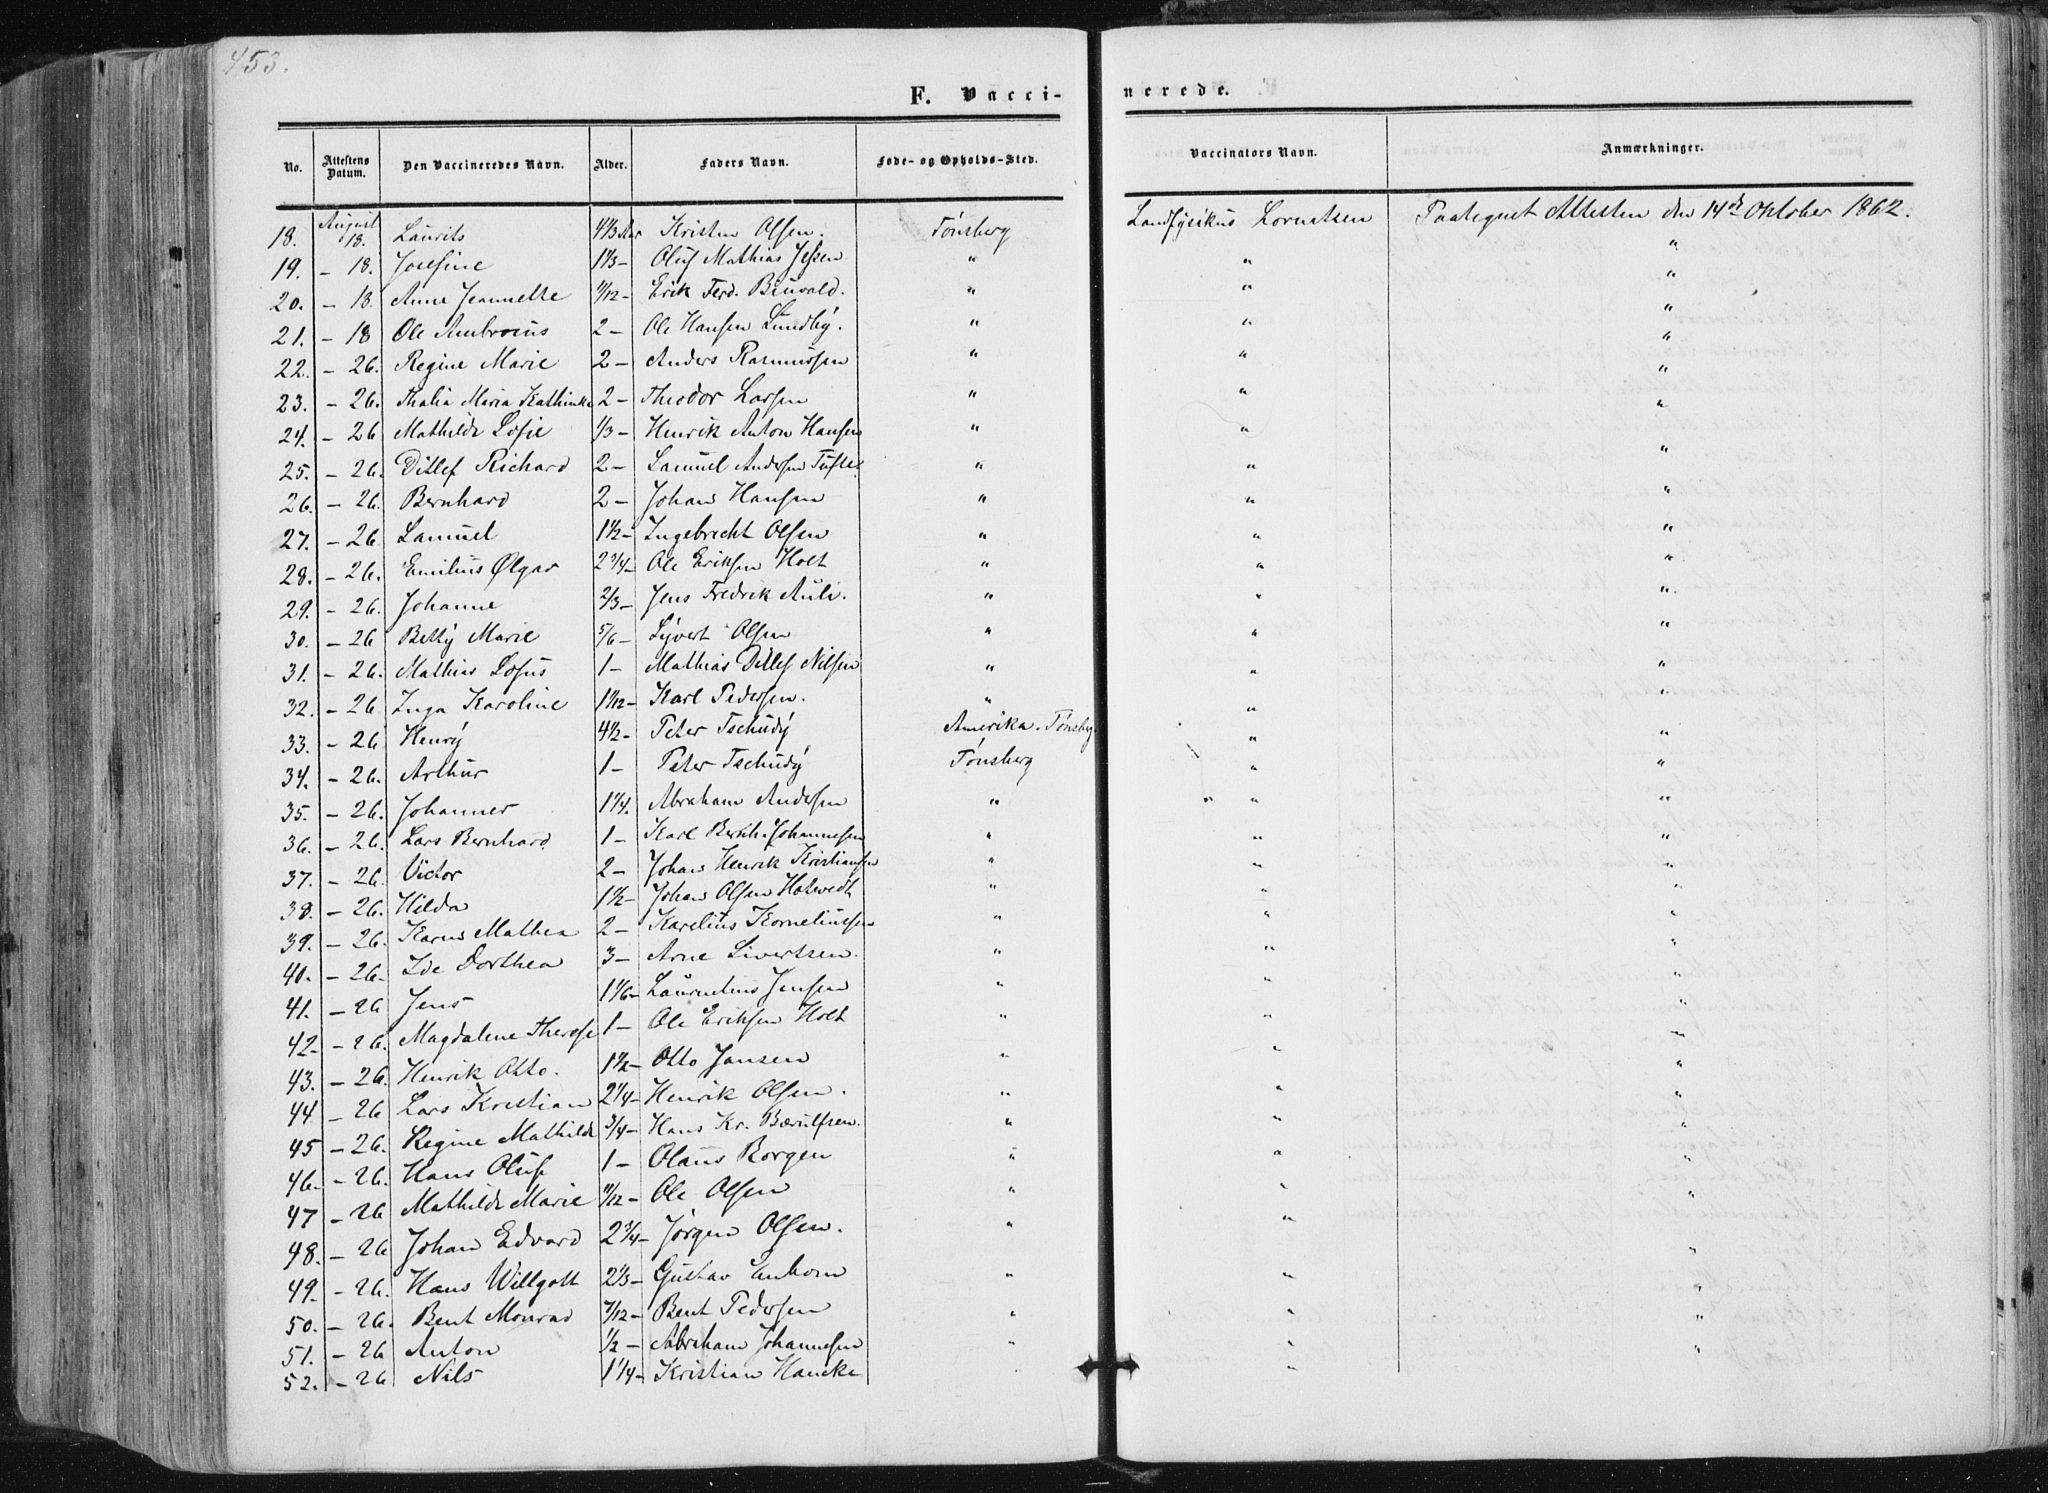 453.
F. Vacci- nerede.
No. Attestens Datum. Den Vaccineredes Navn. Alder. Faders Navn. Føde- og Opholds-Sted. Vaccinators Navn. Anmærkninger.
18. August 18. Laurits 4 1/3 Aar Kristen Olsen. Tønsberg Landfysikus Lorentsen Paategnet Attesten den 14de Oktober 1862.
19. – 18. Josefine 1 1/3 – Oluf Mathias Jessen " " "
20. – 18. Anne Jeannette 11/12 – Erik Ferd. Bruvald. " " "
21. – 18 Ole Ambrosius 2 – Ole Hansen Lundby. " " "
22. – 26. Regine Marie 2 – Anders Rasmussen " " "
23. – 26. Thalia Maria Kathinka 2 – Theodor Larsen " " "
24. – 26 Mathilde Sofie 1/3 – Henrik Anton Hansen " " "
25. – 26. Ditlef Richard 2 – Samuel Andersen Tufte " " "
26. – 26. Bernhard 2 – Johan Hansen " " "
27. – 26 Samuel 1 1/2 – Ingebrecht Olsen " " "
28. – 26. Emilius Ølgar 2 3/4 – Ole Eriksen Holt " " "
29. – 26. Johanne 2/3 – Jens Fredrik Auli. " " "
30. – 26 Betty Marie 5/6 – Syvert Olsen " " "
31. – 26. Mathias Sofus 1 – Mathias Ditlef Nilsen " " "
32. – 26 Inga Karoline 1 1/12 – Karl Pedersen. " " "
33. – 26 Henry 4 1/2 – Peter Tschudy Amerika. Tønsbg. " "
34. – 26. Arthur 1 – Peter Tschudy Tønsberg " "
35. – 26. Johannes 1 1/4. Abraham Andersen " " " "
36. – 26. Lars Bernhard 1 – Karl Bernh. Johannesen " " "
37. – 26. Victor 2 – Johan Henrik Kristiansen " " "
38. – 26. Hilda 1 1/2 – Johan Olsen Holwedt " " "
39. – 26. Karen Mathea 2 – Karelius Korneliussen " " "
40. – 26. Ide Dorthea 3 – Arne Sivertsen. " " "
41. – 26 Jens 1 1/6 – Laurentius Jensen " " "
42. – 26. Magdalene Therese 1 – Ole Eriksen Holt " " "
43. – 26. Henrik Otto. 1 1/2 – Otto Jansen " " "
44 – 26 Lars Kristian 2 1/4 – Henrik Olsen. " " "
45 – 26. Regine Mathilde 3/4 – Hans Kr. Bærulfsen. " " "
46. – 26. Hans Oluf 1 – Olaus Borgen " " "
47 – 26 Mathilde Marie 11/12 – Ole Olsen " " "
48. – 26 Johan Edvard 2 3/4 – Jørgen Olsen. " " "
49. – 26. Hans Willgott 2 1/3 – Gustav Enhorn " " "
50. – 26. Bent Monrad 7/12 – Bent Pedersen " " "
51. – 26 Anton 1/2 – Abraham Johannesen " " "
52. – 26 Nils 1 1/4 – Kristian Hancke " "